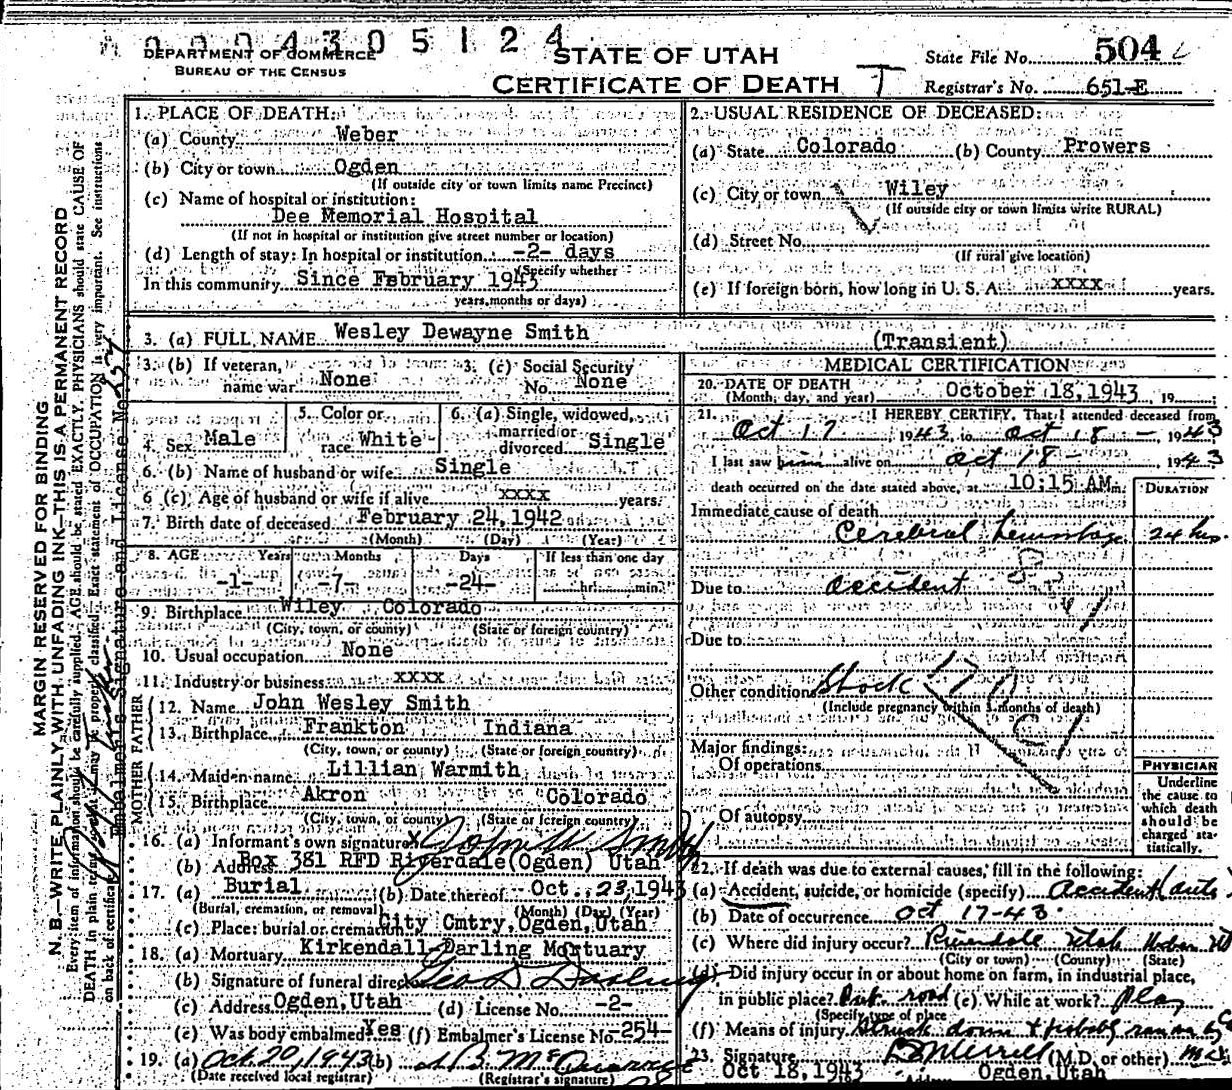 0004305124
DEPARTMENT OF COMMERCE
BUREAU OF THE CENSUS
STATE OF UTAH
CERTIFICATE OF DEATH T
State File No. 504
Registrar's No. 651-E
1. PLACE OF DEATH:
(a) County Weber
(b) City or town Ogden
(If outside city or town limits name Precinct)
(c) Name of hospital or institution:
Dee Memorial Hospital
(If not in hospital or institution give street number or location)
(d) Length of stay: In hospital or institution -2- days
(Specify whether
In this community Since February 1943
years, months or days)
2. USUAL RESIDENCE OF DECEASED:
(a) State Colorado (b) County Prowers
(c) City or town Wiley
(If outside city or town limits write RURAL)
(d) Street No.
(If rural give location)
(e) If foreign born, how long in U. S. A. xxxx years.
3. (a) FULL NAME Wesley Dewayne Smith (Transient)
3. (b) If veteran, name war None
3. (c) Social Security No. None
4. Sex Male
5. Color or race White
6. (a) Single, widowed, married or divorced Single
6. (b) Name of husband or wife Single
6 (c) Age of husband or wife if alive xxxx years.
7. Birth date of deceased February 24, 1942
(Month) (Day) (Year)
8. AGE Years Months Days If less than one day
-1- -7- -24- hr. min.
9. Birthplace Wiley Colorado
(City, town, or county) (State or foreign country)
10. Usual occupation None
11. Industry or business xxxx
FATHER
12. Name John Wesley Smith
13. Birthplace Frankton Indiana
(City, town, or county) (State or foreign country)
MOTHER
14. Maiden name Lillian Warmith
15. Birthplace Akron Colorado
(City, town, or county) (State or foreign country)
16. (a) Informant's own signature x John W Smith
(b) Address Box 381 RFD Riverdale (Ogden) Utah
17. (a) Burial (b) Date thereof Oct. 23, 1943
(Burial, cremation, or removal) (Month) (Day) (Year)
(c) Place: burial or cremation City Cmtry, Ogden, Utah
18. (a) Mortuary Kirkendall-Darling Mortuary
(b) Signature of funeral director Geo D Darling
(c) Address Ogden, Utah (d) License No. -2-
(e) Was body embalmed? Yes (f) Embalmer's License No. -254-
19. (a) Oct. 20, 1943 (b)
(Date received local registrar) (Registrar's signature)
MEDICAL CERTIFICATION
20. DATE OF DEATH October 18, 1943, 19
(Month, day, and year)
21. I HEREBY CERTIFY, That I attended deceased from
Oct 17 1943 to Oct 18 -, 1943
I last saw him alive on Oct 18 - , 1943
death occurred on the date stated above, at 10:15 AM m.
DURATION
Immediate cause of death
Cerebral 24 hrs.
Due to accident
Due to
Other conditions Shock
(Include pregnancy within 3 months of death)
170 C
Major findings:
Of operations
Of autopsy
PHYSICIAN
Underline
the cause to
which death
should be
charged sta-
tistically.
22. If death was due to external causes, fill in the following:
(a) Accident, suicide, or homicide (specify) Accident auto
(b) Date of occurrence Oct 17-43
(c) Where did injury occur? Riverdale Utah
(City or town) (County) (State)
(d) Did injury occur in or about home on farm, in industrial place,
in public place? Pub. road (e) While at work? Play
(Specify type of place
(f) Means of injury Struck down & probably ran over by
23. Signature Merrill (M.D. or other)
Oct 18, 1943 Ogden, Utah
MARGIN RESERVED FOR BINDING
N. B.—WRITE PLAINLY, WITH UNFADING INK—THIS IS A PERMANENT RECORD
Every item of information should be carefully supplied. AGE should be stated EXACTLY. PHYSICIANS should state CAUSE OF
DEATH in plain terms so that it may be properly classified. Exact statement of OCCUPATION is very important. See instructions
on back of certificate.
Embalmer's Signature and License No.